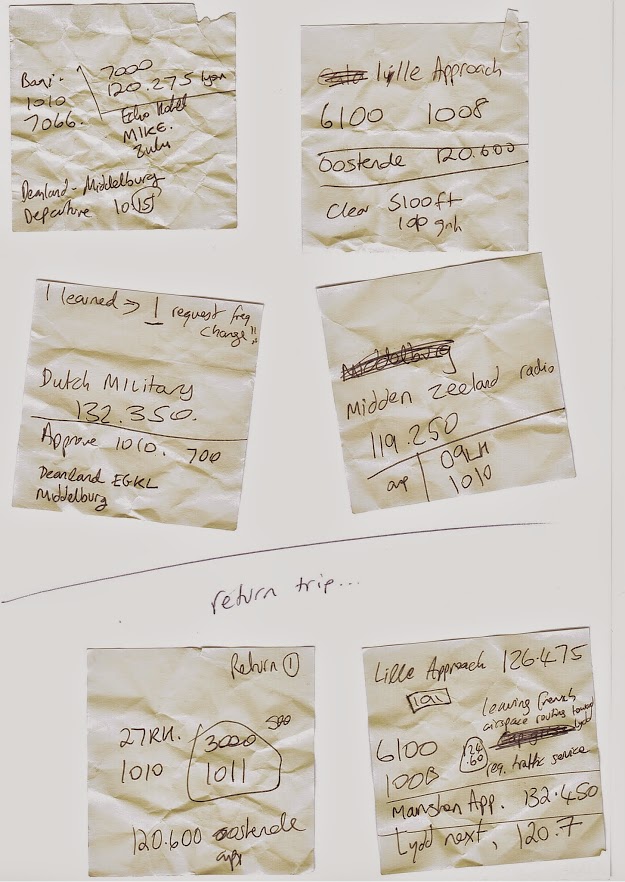 7000
120.275 Lyon
1010
7066.
Echo Hotel
MIKE.
Zulu
Deanland - Middelburg
Departure 1015
Lille Approach
6100 1008
Oostende 120.600
Clear 5100ft
1 learned → 1 request freq
change!!
Dutch Military
132.350.
Approve 1010. 700
Deanland EGKL
Middelburg
Middelburg
Midden Zeeland radio
119.250
09LH
1010
return trip...
Return 1
27RH. 3000 500
1010 1011
120.600 Oostende
Lille Approach 126.475
leaving french
airspace routing toward
Lydd
6100
1008
req. traffic service
Manston App. 132.450
Lydd next, 120.7